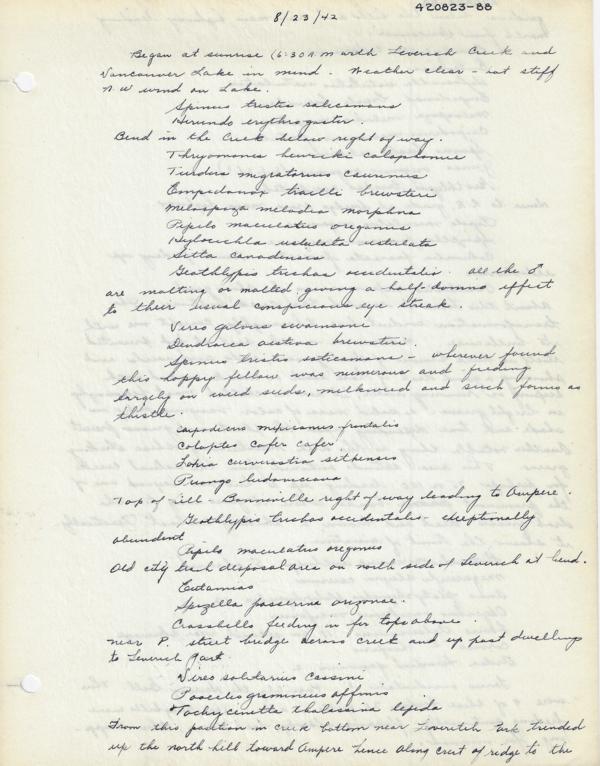 8/23/42
420823-88
Began at sunrise (6:30 A.M with Leverich Creek and
Vancouver Lake in mind. Weather clear - stiff
N W wind on Lake.
Spinus tristis salicamans
Hirundo erythrogaster.
Bend in the Creek below right of way.
Thryomanes bewicki calophonus
Turdus migratorius caurinus
Empidonax trailli brewsteri
Melospiza melodia morphna
Pipilo maculatus oregonus
Hylocichla ustulata ustulata
Sitta canadensis
Geothlypis trichas occidentalis. All the ♂
are molting or molted, giving a half-domno effect
to their usual conspicious eye streak.
Vireo gilvus swainsoni
Dendroica aestiva brewsteri.
Spinus tristis salicamans - wherever found
this happy fellow was numerous and feeding
largely on weed seeds, milkweed and such forms as
thistle.
Carpodacus mexicanus frontalis
Colaptes cafer cafer
Loxia curvirostra sitkensis
Piranga ludoviciana
Top of hill - Bonneville right of way leading to Ampere.
Geothlypis trichas occidentalis - exceptionally
abundant
Pipilo maculatus oregonus
Old city trash disposal area on north side of Leverich at bend.
Eutamias
Spizella passerina arizonae.
Crossbills feeding in fir tops above.
Near P. street bridge across creek and up past dwellings
to Leverich Park.
Vireo solitarius cassini
Pooecetes gramineus affinis
Tachycineta thalassina lepida
From this position in creek bottom near Leverich Park trended
up the north hill toward Ampere hence along crest of ridge to the